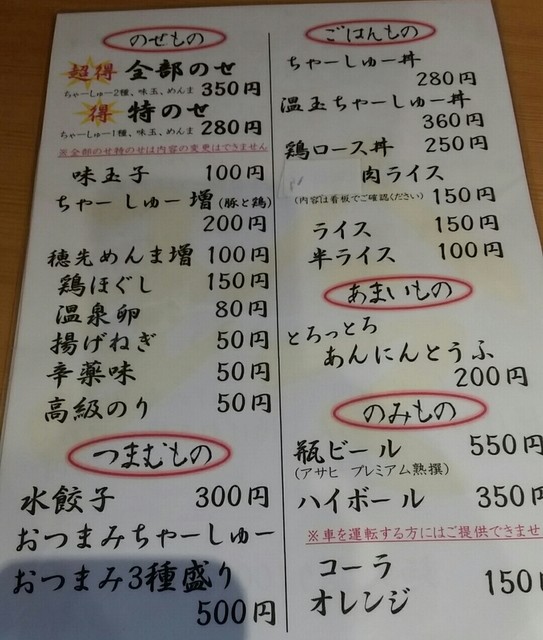 のせもの
超得 全部のせ
ちゃーしゅー2種、味玉、めんま 350円
得 特のせ
ちゃーしゅー1種、味玉、めんま 280円
※全部のせ特のせは内容の変更はできません
味玉子 100円
ちゃーしゅー増(豚と鶏)
200円
穂先めんま増 100円
鶏ほぐし 150円
温泉卵 80円
揚げねぎ 50円
辛薬味 50円
高級のり 50円
つまむもの
水餃子 300円
おつまみちゃーしゅー
おつまみ3種盛り
500円
ごはんもの
ちゃーしゅー丼
280円
温玉ちゃーしゅー丼
360円
鶏ロース丼 250円
肉ライス
(内容は看板でご確認ください) 150円
ライス 150円
半ライス 100円
あまいもの
とろっとろ
あんにんとうふ
200円
のみもの
瓶ビール 550円
(アサヒ プレミアム熟撰)
ハイボール 350円
※車を運転する方にはご提供できませ
コーラ
オレンジ 150円